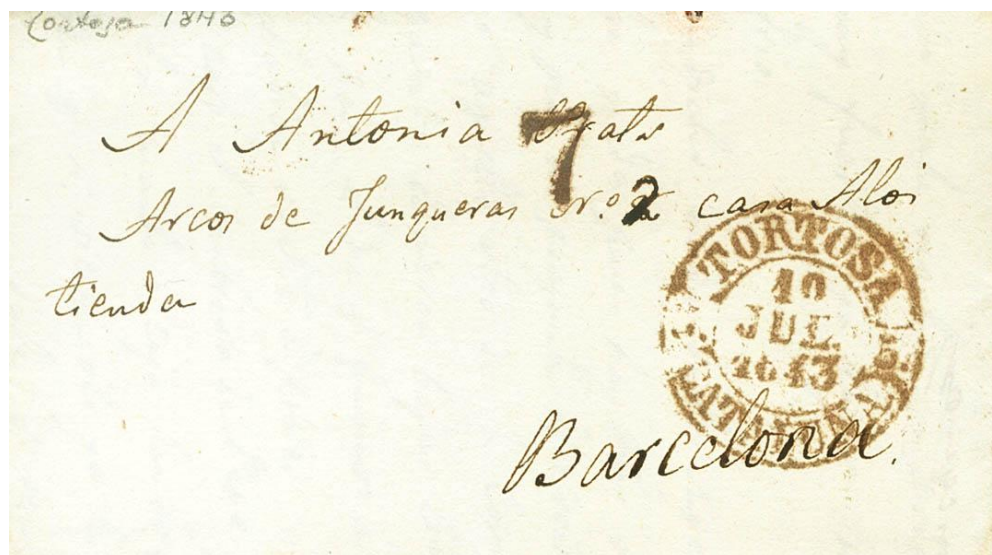 Tortosa 1843
A Antonia Prats
7
Arcos de Junqueras Nr.o 2 casa Aloi
tienda
TORTOSA
10
JUL.
1843
CATALUÑA
Barcelona.